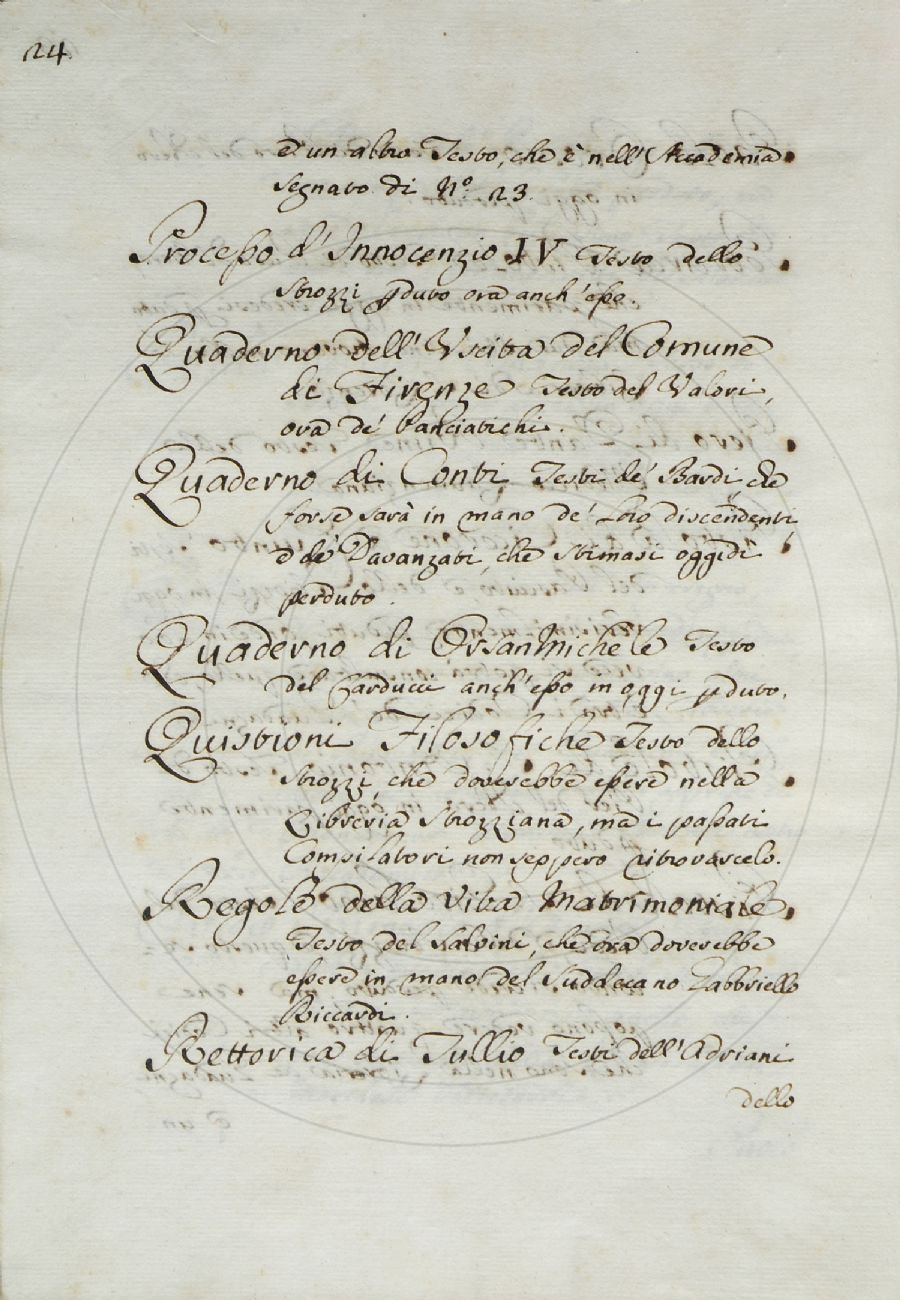 24
e un altro Testo, che è nell'Accademia
segnato di N.° 23.
Processo d'Innocenzio IV Testo dello
Strozzi p̱duto ora anch'esso.
Quaderno dell'Uscita del Comune
di Firenze Testo del Valori,
ora de' Panciatichi.
Quaderno di Conti Testi de' Bardi, che
forse sarà in mano de' Loro discendenti
e de' Davanzati, che stimasi oggidi
perduto.
Quaderno di Orsanmichele Testo
del Carducci anch'esso in oggi p̱duto.
Quistioni Filosofiche Testo dello
Strozzi, che doverebbe essere nella
Libreria Strozziana, ma i passati
Compilatori non seppero ritrovarcelo.
Regole della vita Matrimoniale
Testo del Salvini, che ora doverebbe
essere in mano del Suddecano Gabbriello
Riccardi.
Rettorica di Tullio Testi dell'Adriani
dello